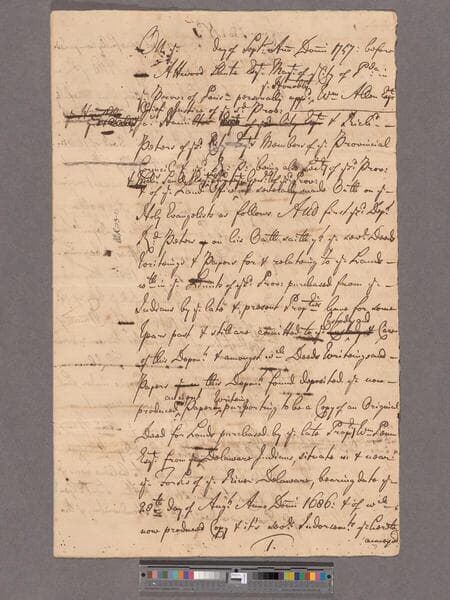 On ye day of Septr Ann Dom 1757 before
Attwood Shute Esqr Mayr of ye City of Pda in
ye Provce of personally appd ye Honoble Wm Allen Esqr
Chief Justice of ye sd Prov
& Richd
Peters of ye Members of ye Provincial
Council being also Secty of ye Prov
& of ye Land Office severally made Oath on ye
Holy Evangelists as follows And first ye Dept
Rd Peters on his Oath saith yt ye sevl Deeds
Writings & Papers for & relating to ye Lands
wthin ye Limits of ye Prov purchased from ye
Indians by ye late & present Proprs have for some
Years past & still are committed to ye Custody & Care
of this Depont & amongst wch Deeds Writings and
Papers this Depont found deposited ye now
produced Paper ancient writing purporting to be a Copy of an Original
Deed for Lands purchased by ye late Propr Wm Penn
Esqr from ye Delaware Indians situate in & near
ye Forks of ye River Delaware, bearing date ye
28th day of Augt Anno Domi 1686: & of wch
now produced Copy & its sevl Indorsemts ye
annexed